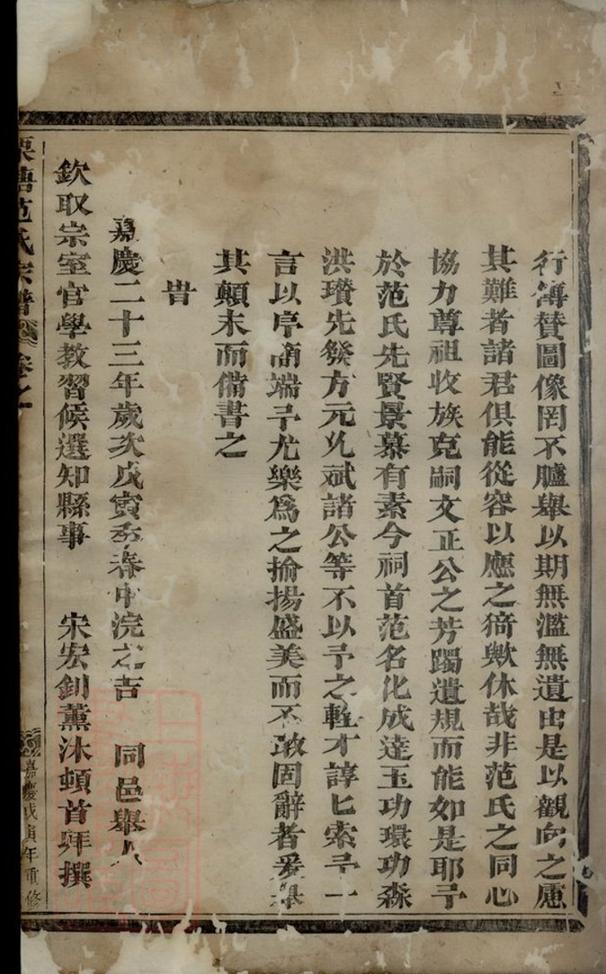 行傳贊圖像罔不臚舉以期無濫無遺由是以觀向之慮
其難者諸君俱能從容以應之猗歟休哉非范氏之同心
協力尊祖收族克嗣文正公之芳躅遺規而能如是耶予
於范氏先賢景慕有素今祠首范名化成達玉功環功森
洪瓚先發方元乆斌諸公等不以予之輇才諄匕索予一
言以序簡端予尤樂爲之揄揚盛美而不敢固辭者爰舉
其顛末而備書之
旹
嘉慶二十三年歲次戊寅季春中浣之吉 同邑舉人
欽取宗室官學教習候選知縣事 宋宏釗薰沐頓首拜撰
栗塘范氏宗譜 卷之一
嘉慶戊寅年重修